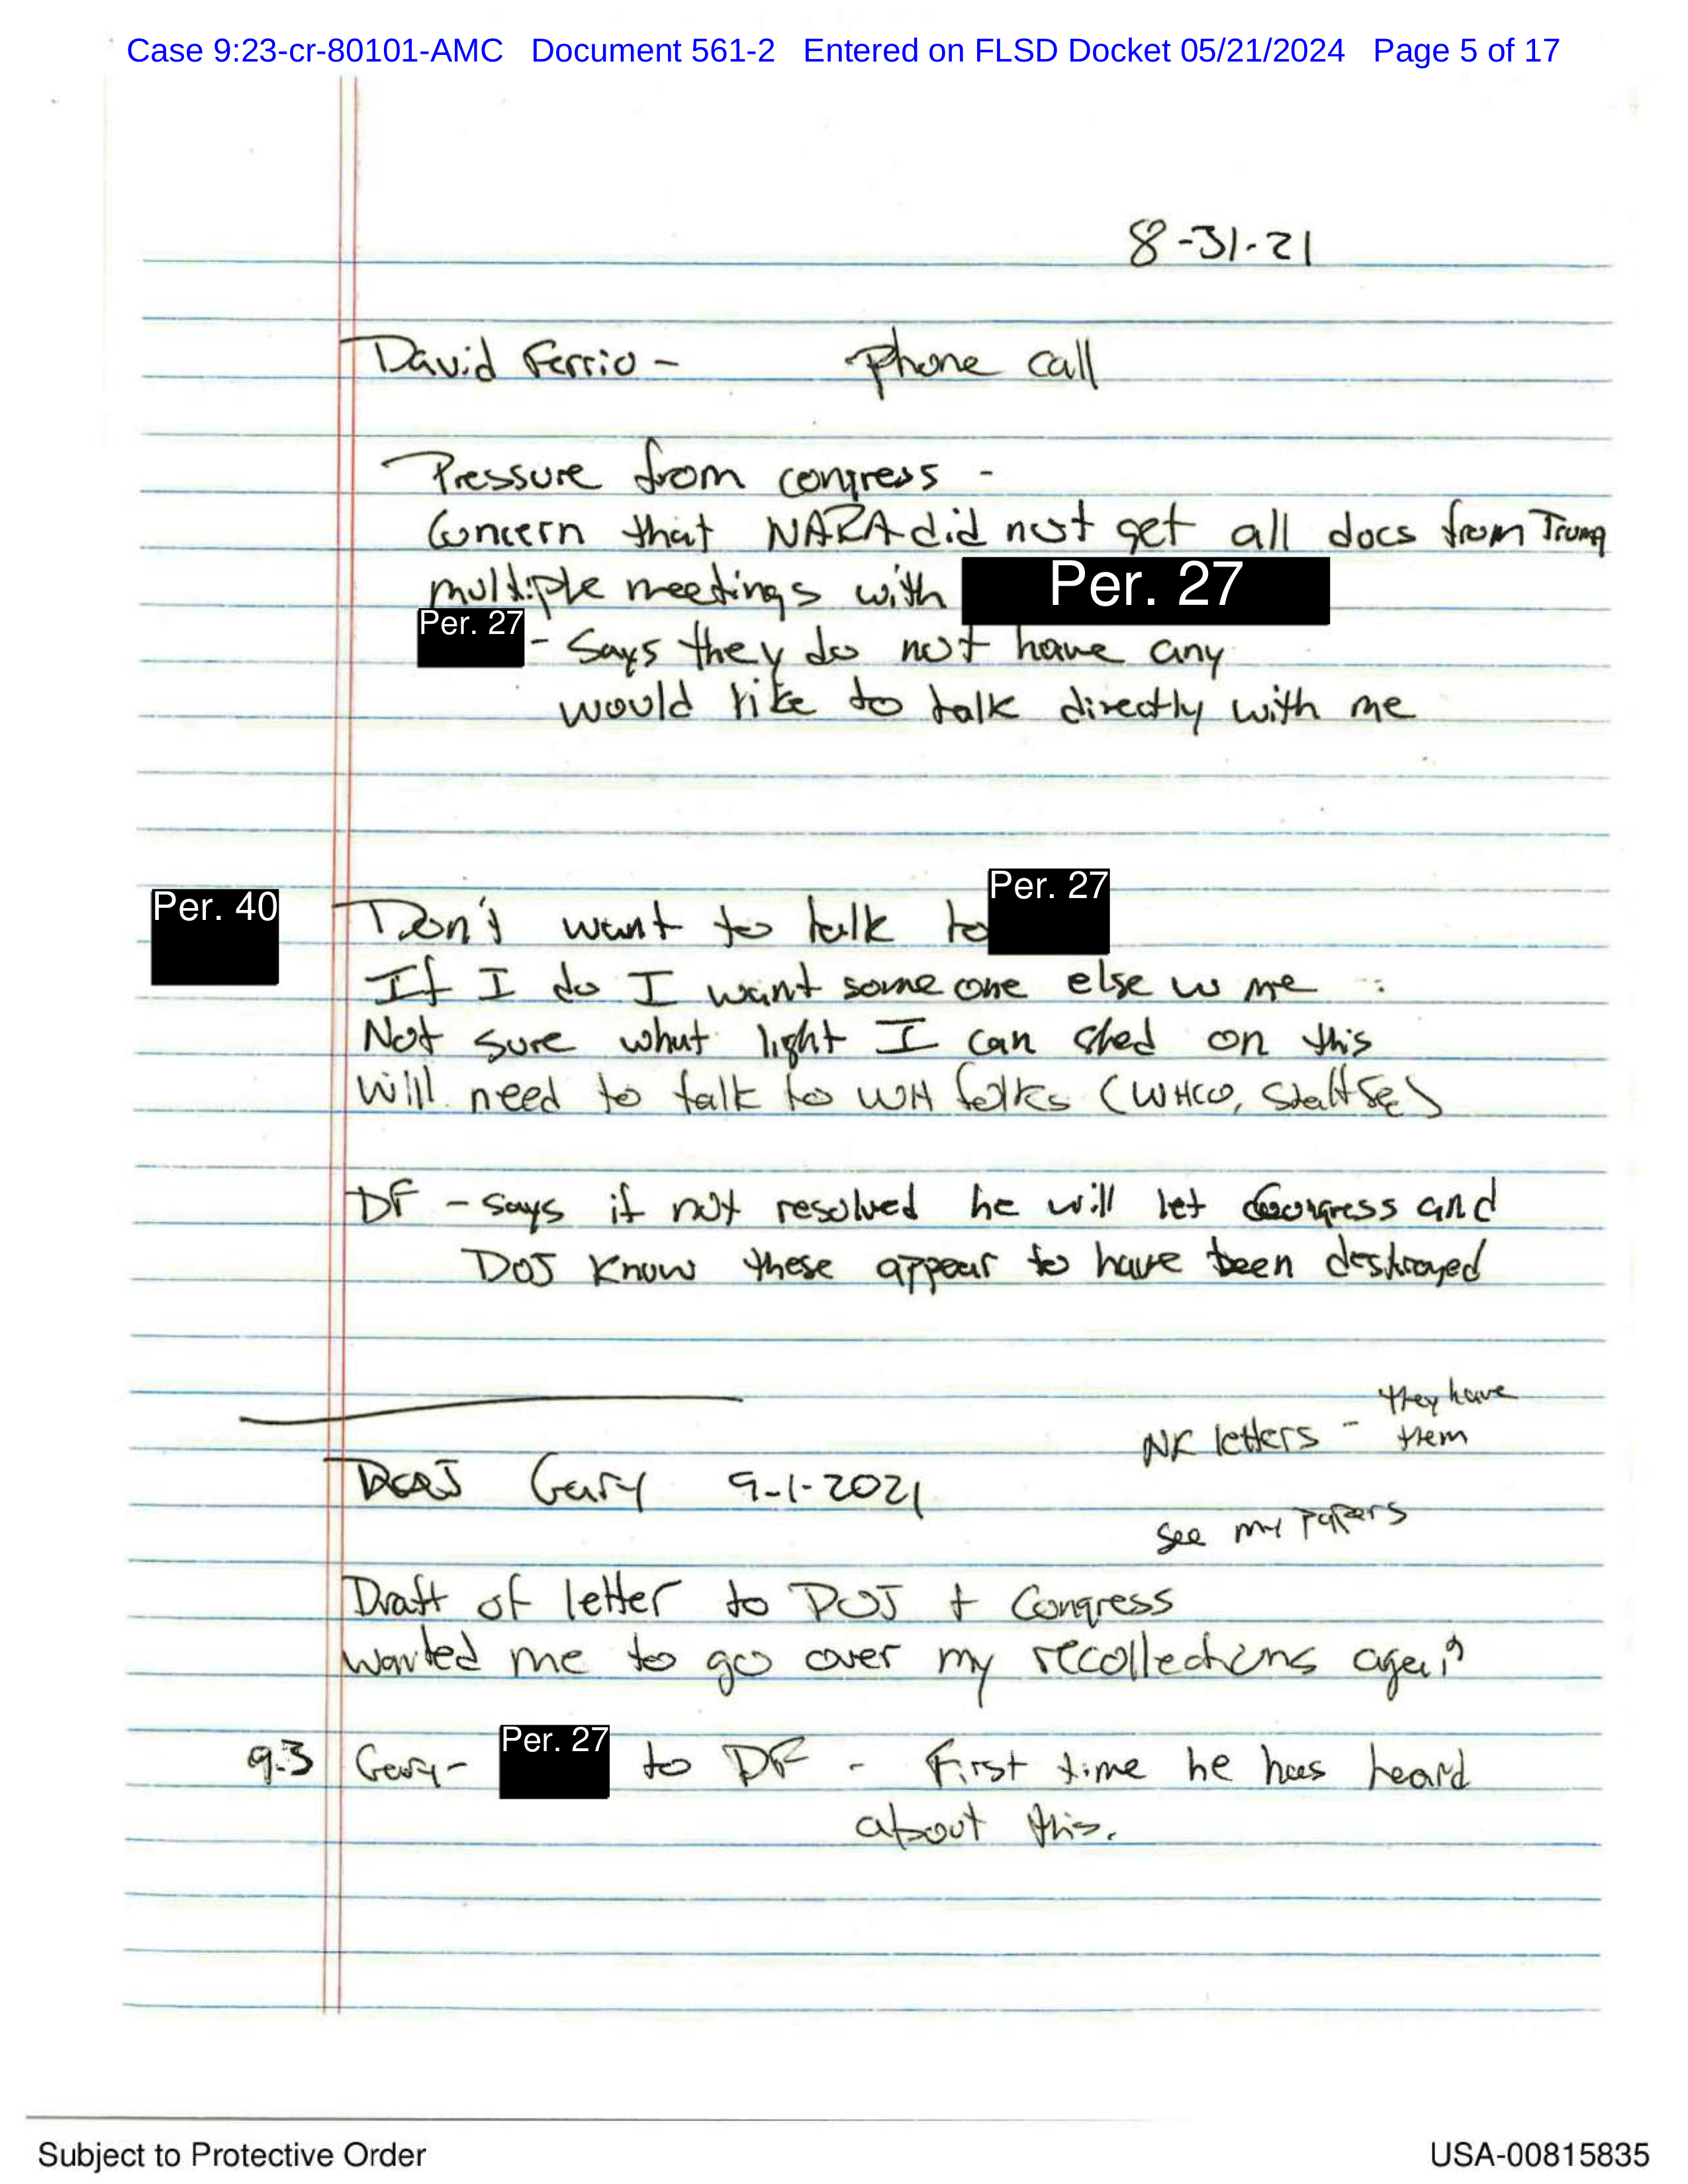 Case 9:23-cr-80101-AMC Document 561-2 Entered on FLSD Docket 05/21/2024 Page 5 of 17
8-31-21
David Ferrio - Phone call
Pressure from congress -
Concern that NARA did not get all docs from Trump
multiple meetings with Per. 27
Per. 27 - Says they do not have any
would like to talk directly with me
Per. 40 Don't want to talk to Per. 27
If I do I want some one else w me
Not sure what light I can shed on this
will need to talk to WH folks (WHCO, Staff Sec)
DF - says if not resolved he will let Congress and
DOJ know these appear to have been destroyed
NK letters - they have them
Gary 9-1-2021
see my papers
Draft of letter to DOJ + Congress
wanted me to go over my recollections again
9.3 Gary - Per. 27 to DF - First time he has heard
about this.
Subject to Protective Order USA-00815835